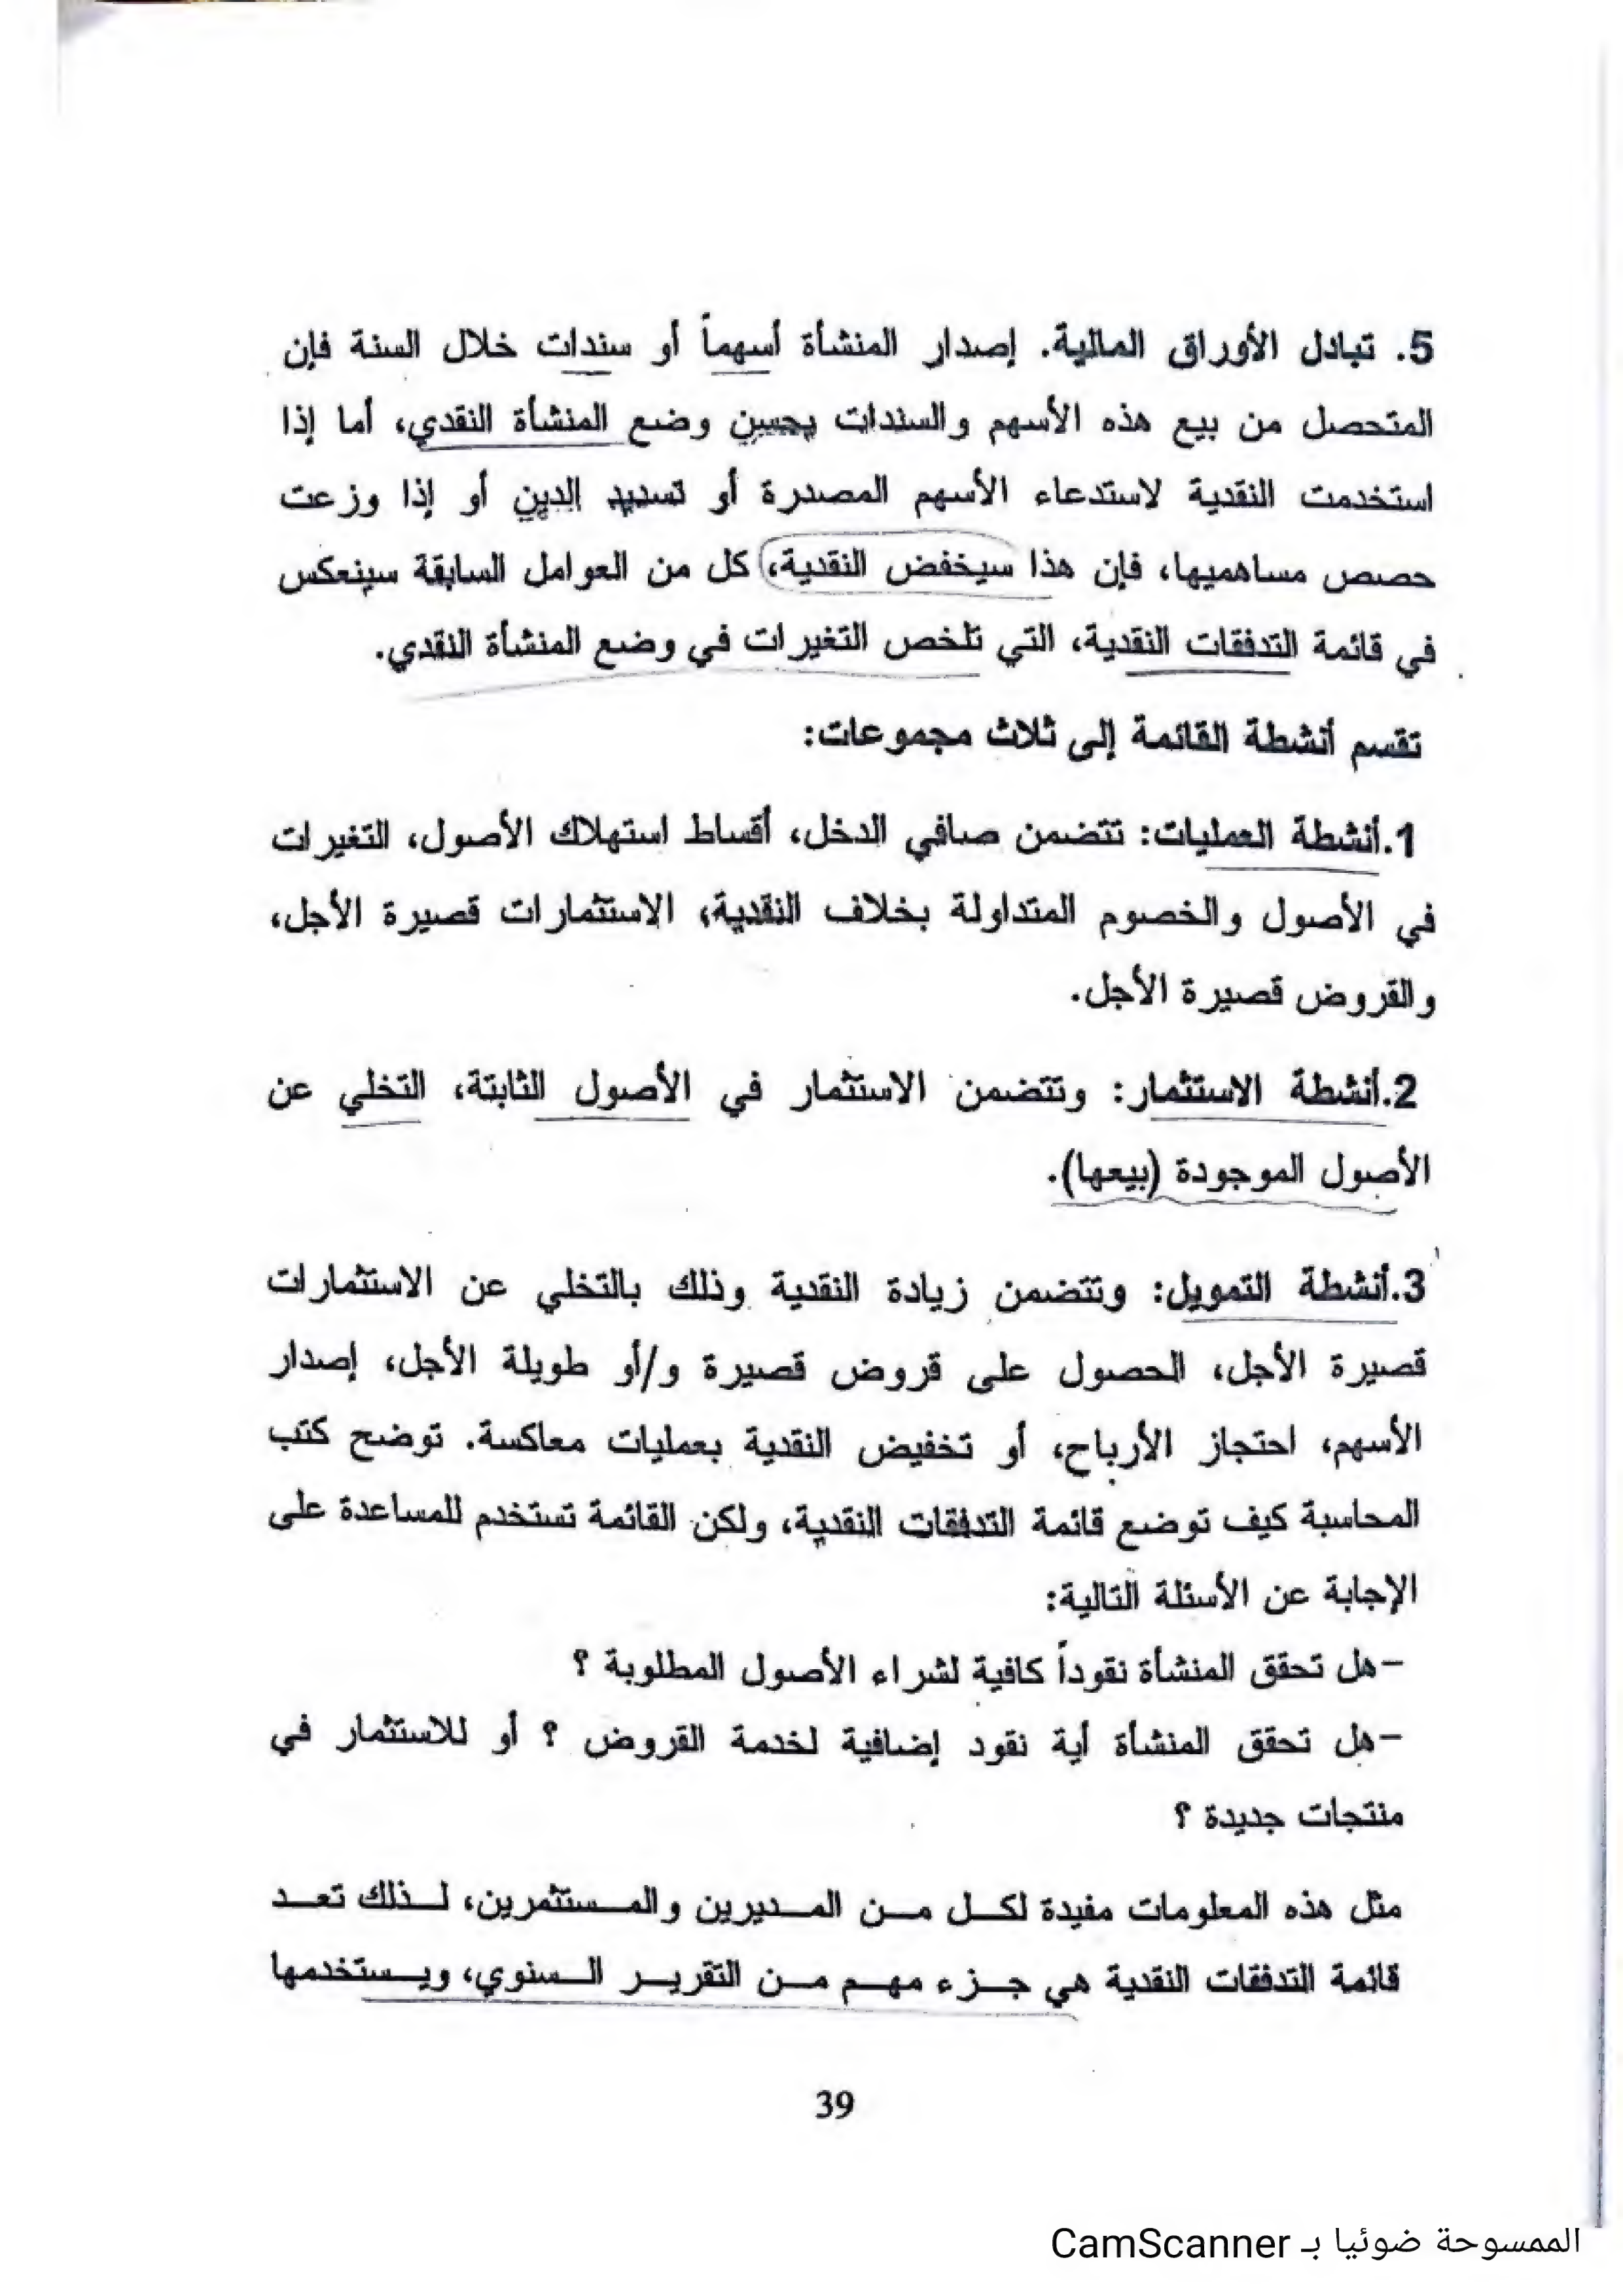 5. تبادل الأوراق المالية. إصدار المنشأة أسهماً أو سندات خلال السنة فإن
المتحصل من بيع هذه الأسهم والسندات يحسن وضع المنشأة النقدي، أما إذا
استخدمت النقدية لاستدعاء الأسهم المصدرة أو تسديد الدين أو إذا وزعت
حصص مساهميها، فإن هذا سيخفض النقدية، كل من العوامل السابقة سينعكس
في قائمة التدفقات النقدية، التي تلخص التغيرات في وضع المنشأة النقدي.
تقسم أنشطة القائمة إلى ثلاث مجموعات:
1.أنشطة العمليات: تتضمن صافي الدخل، أقساط استهلاك الأصول، التغيرات
في الأصول والخصوم المتداولة بخلاف النقدية، الاستثمارات قصيرة الأجل،
والقروض قصيرة الأجل.
2.أنشطة الاستثمار: وتتضمن الاستثمار في الأصول الثابتة، التخلي عن
الأصول الموجودة (بيعها).
3.أنشطة التمويل: وتتضمن زيادة النقدية وذلك بالتخلي عن الاستثمارات
قصيرة الأجل، الحصول على قروض قصيرة و/أو طويلة الأجل، إصدار
الأسهم، احتجاز الأرباح، أو تخفيض النقدية بعمليات معاكسة. توضح كتب
المحاسبة كيف توضع قائمة التدفقات النقدية، ولكن القائمة تستخدم للمساعدة على
الإجابة عن الأسئلة التالية:
-هل تحقق المنشأة نقوداً كافية لشراء الأصول المطلوبة ؟
-هل تحقق المنشأة أية نقود إضافية لخدمة القروض ؟ أو للاستثمار في
منتجات جديدة ؟
مثل هذه المعلومات مفيدة لكل من المديرين والمستثمرين، لذلك تعد
قائمة التدفقات النقدية هي جزء مهم من التقرير السنوي، ويستخدمها
39
الممسوحة ضوئيا بـ CamScanner